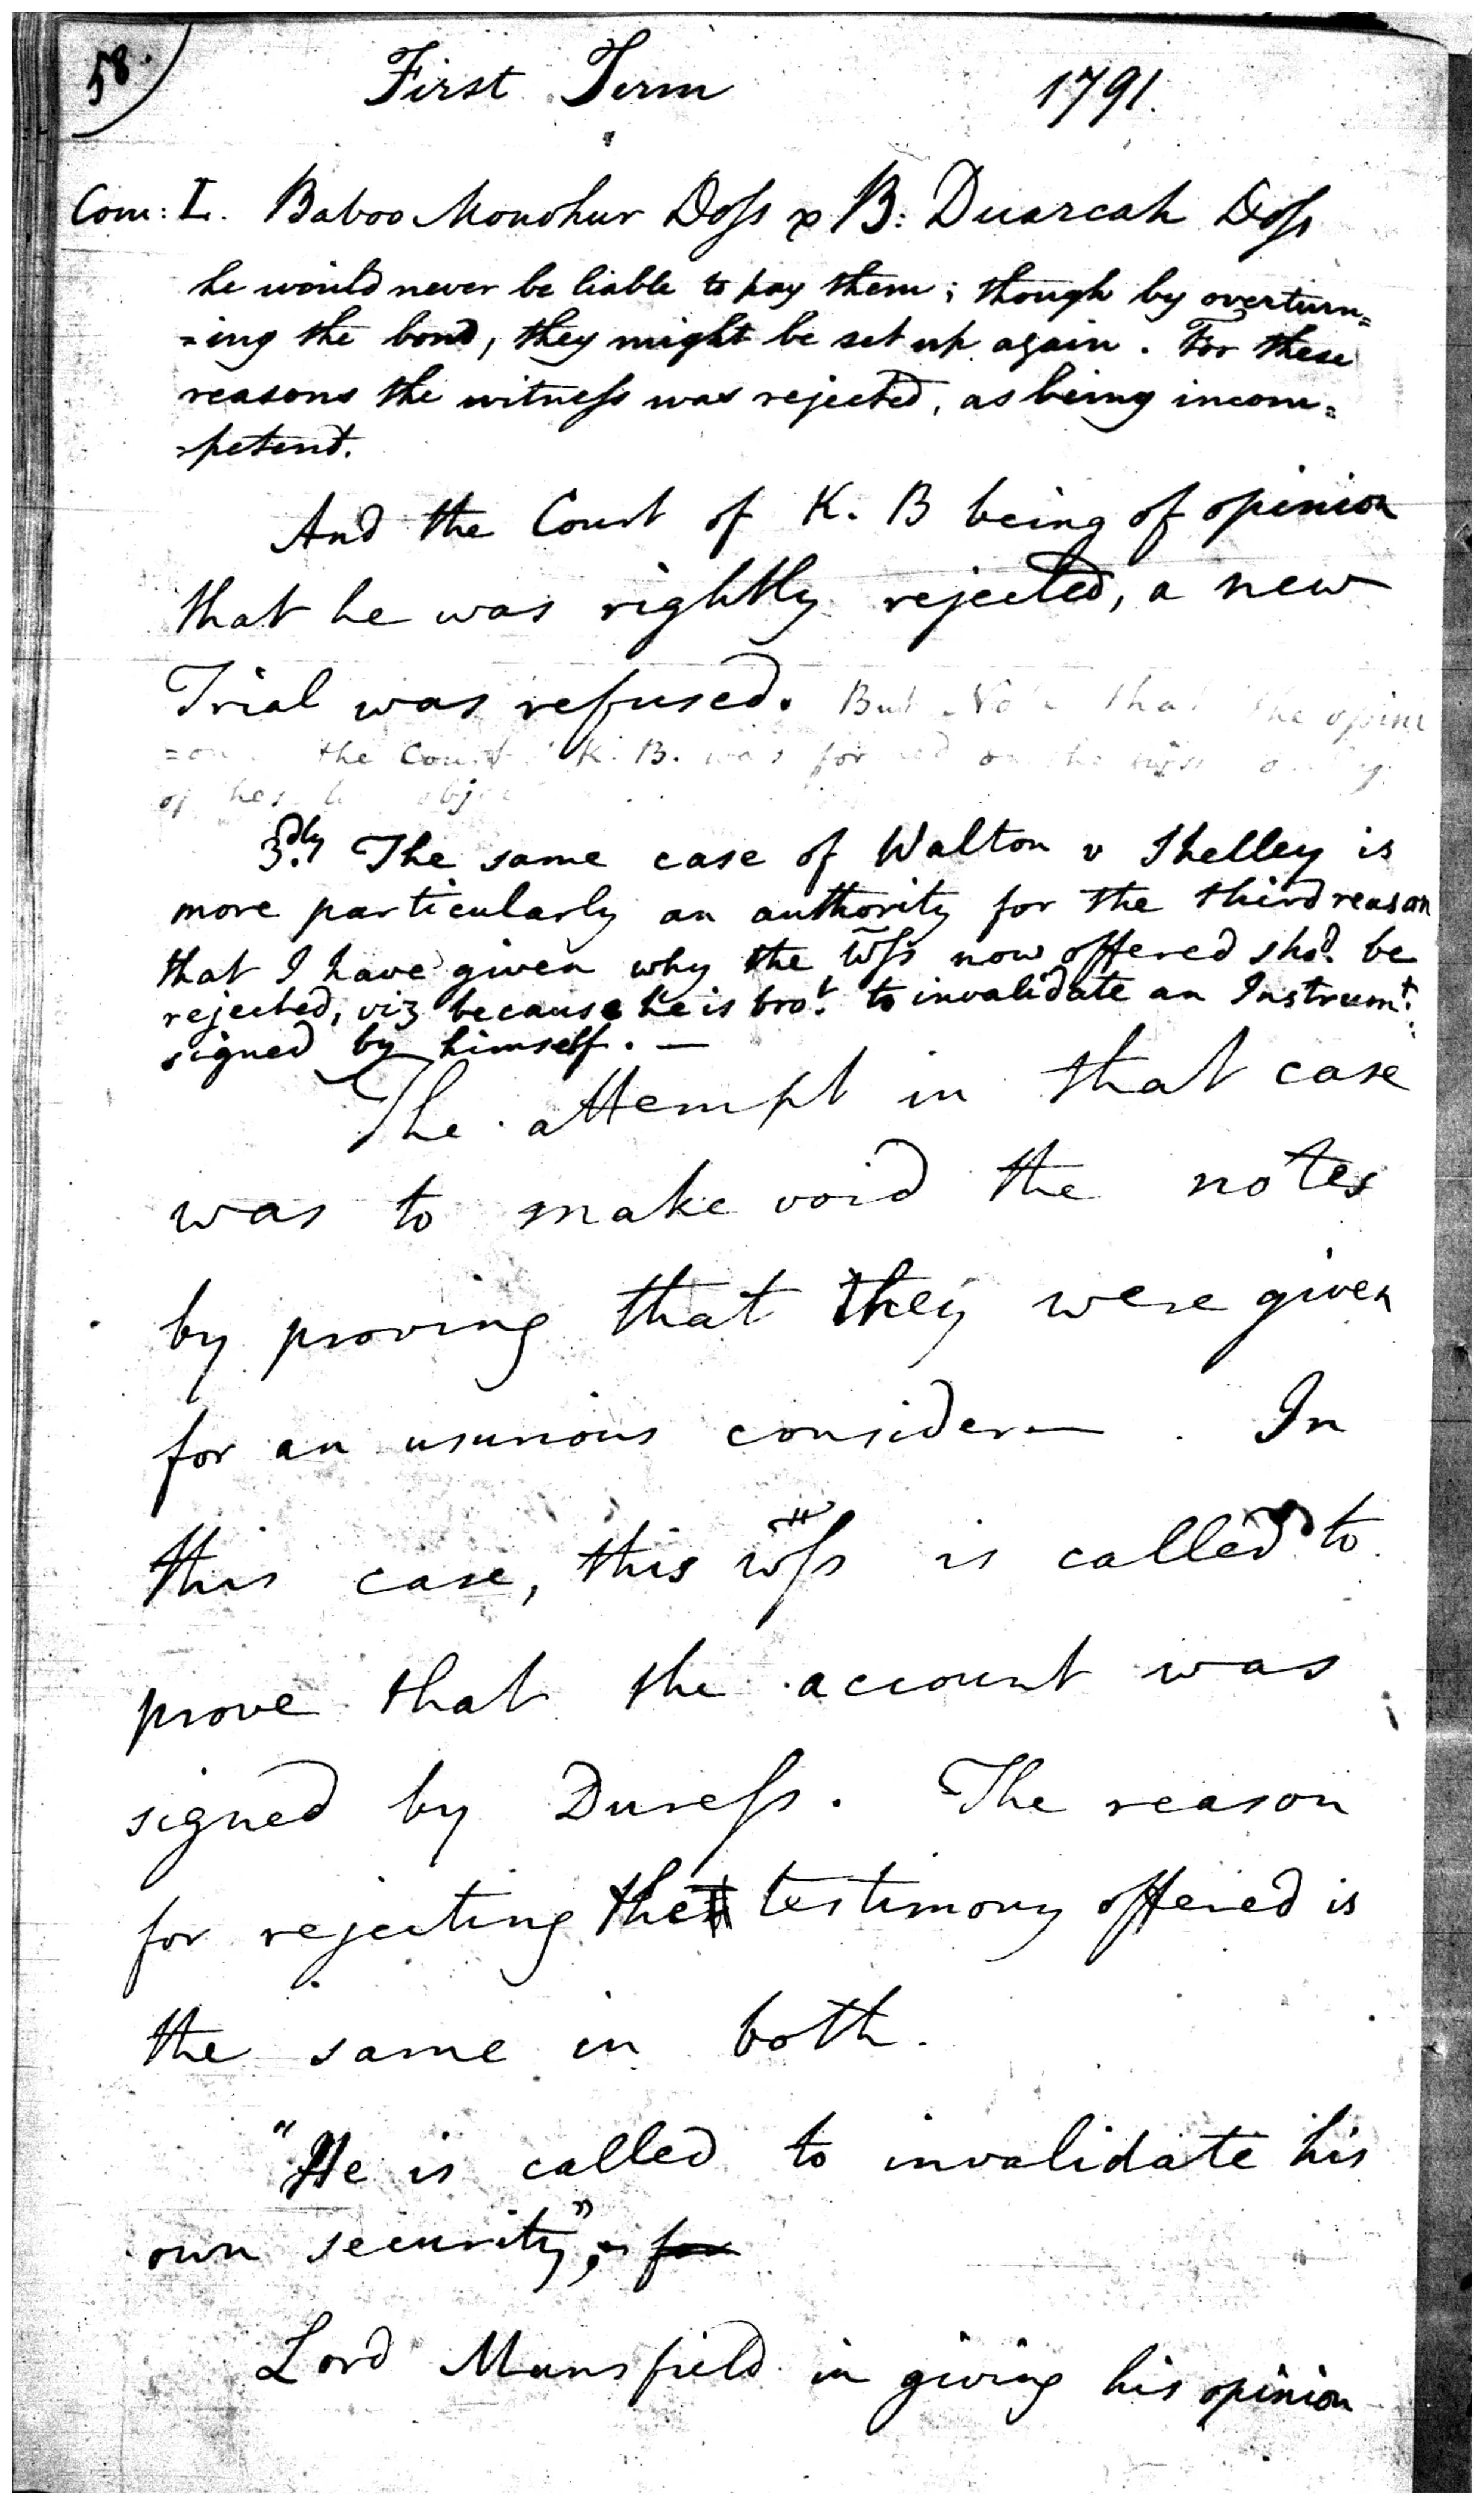 58.
First Term 1791.
Com: L. Baboo Monohur Doss v B: Duarcah Doss
he would never be liable to pay them; though by overturn=
=ing the bond, they might be set up again. For these
reasons the witness was rejected, as being incom=
=petent.
And the Court of K. B being of opinion
that he was rightly rejected, a new
Trial was refused. But that the opini
the Court K. B. was on the
of
3dly. The same case of Walton v Shelley is
more particularly an authority for the third reason
that I have given why the Wss now offered shod. be
rejected, viz because he is brot. to invalidate an Instrumt.
signed by himself. —
The attempt in that case
was to make void the notes
by proving that they were given
for an usurious consider— . In
this case, this wss is called to
prove that the account was
signed by Duress. The reason
for rejecting the testimony offered is
the same in both.
"He is called to invalidate his
own security"; for
Lord Mansfield in giving his opinion